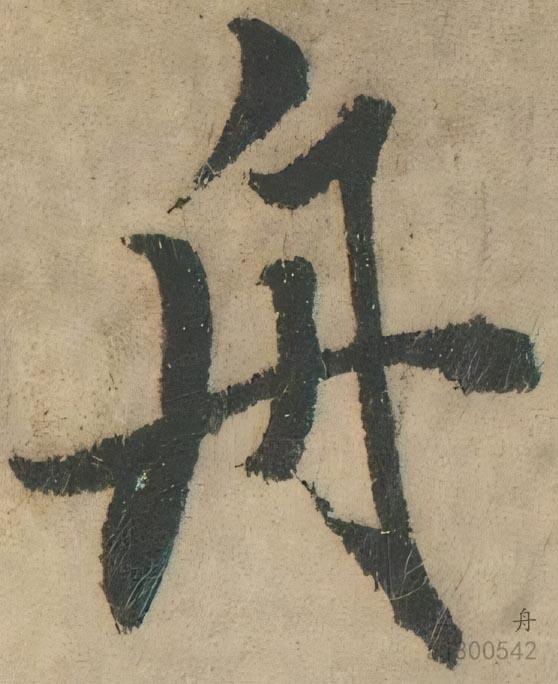 舟
舟
300542